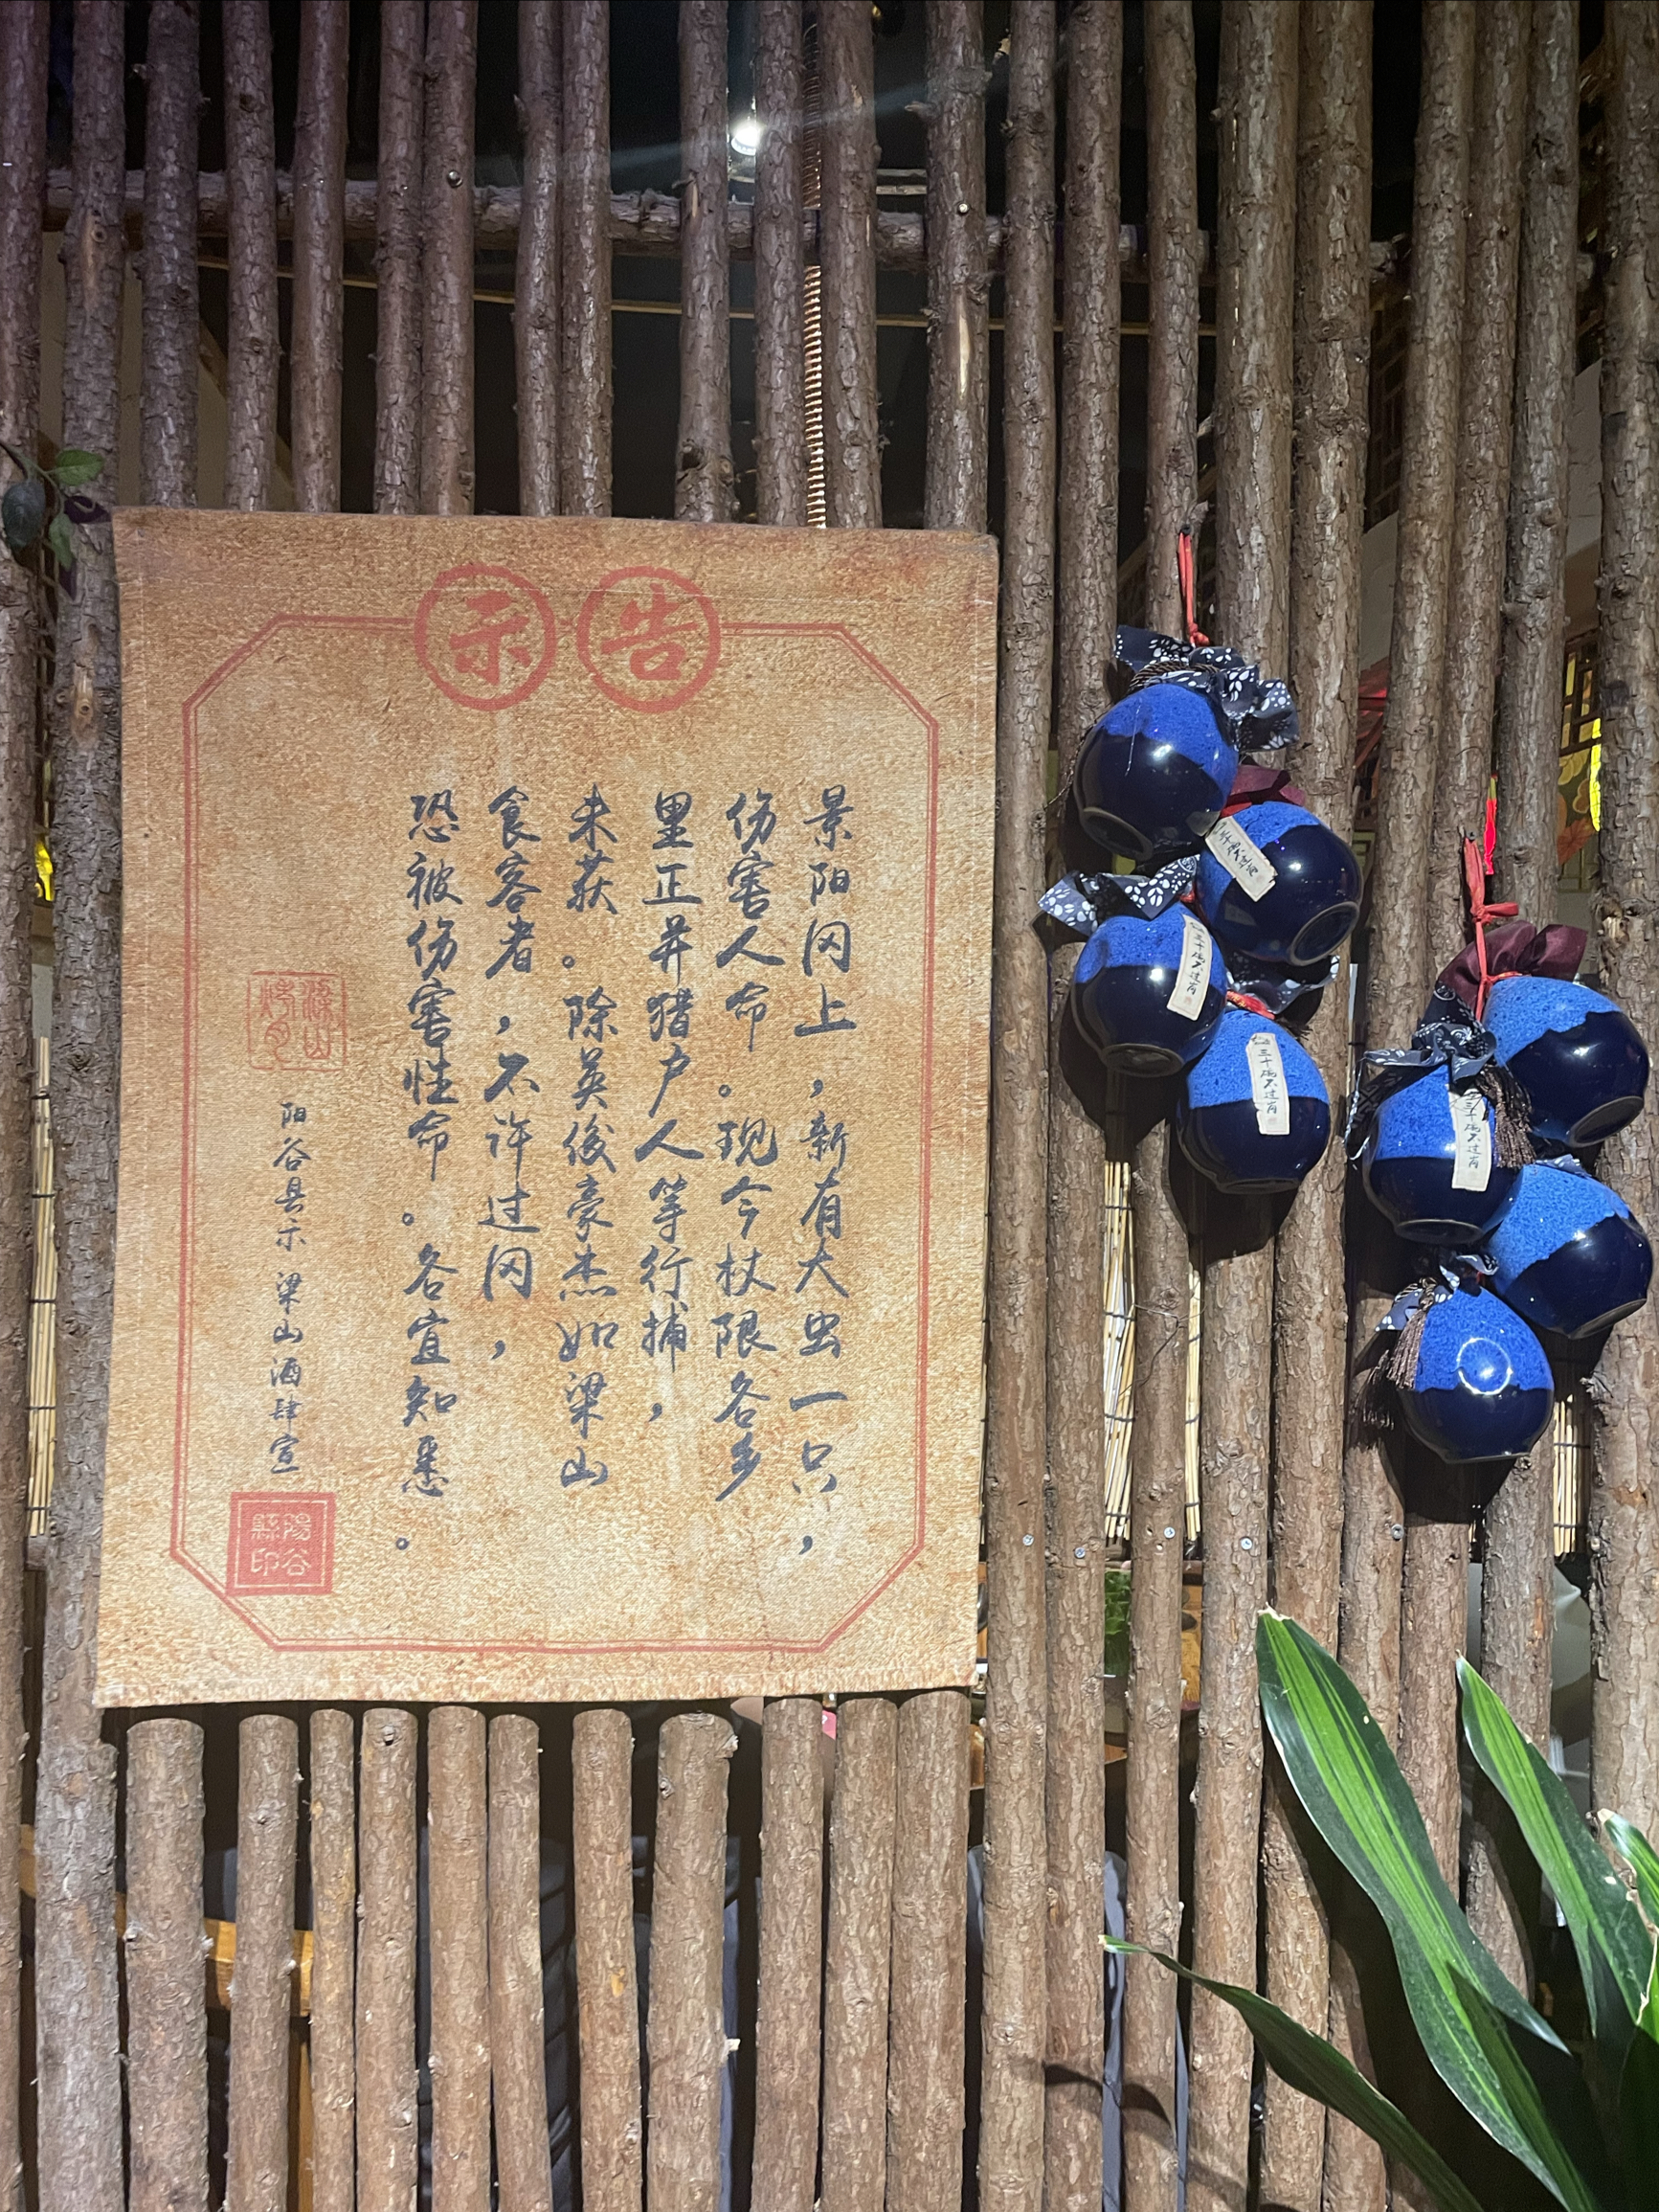 告示
景阳冈上，新有大虫一只，
伤害人命。现今杖限各乡
里正并猎户人等行捕，
未获。除英俊豪杰如梁山
食客者，不许过冈，
恐被伤害性命。各宜知悉。
阳谷县示 梁山酒肆宣
陽谷縣印
三十碗不过肖
三十碗不过肖
三十碗不过肖